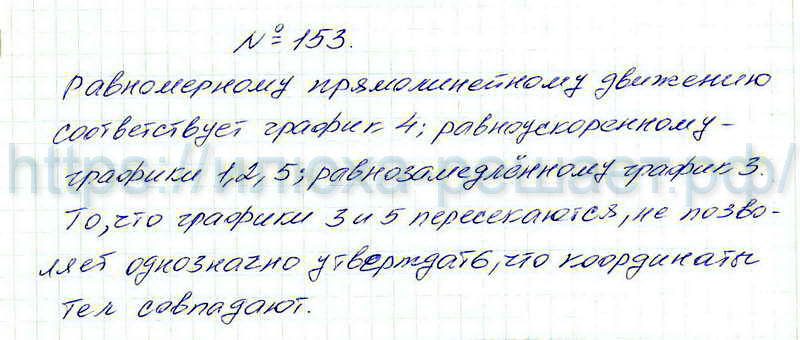 № 153.
Равномерному прямолинейному движению
соответствует график 4; равноускоренному -
графики 1, 2, 5; равнозамедлённому график 3.
То, что графики 3 и 5 пересекаются, не позво-
ляет однозначно утверждать, что координаты
тел совпадают.